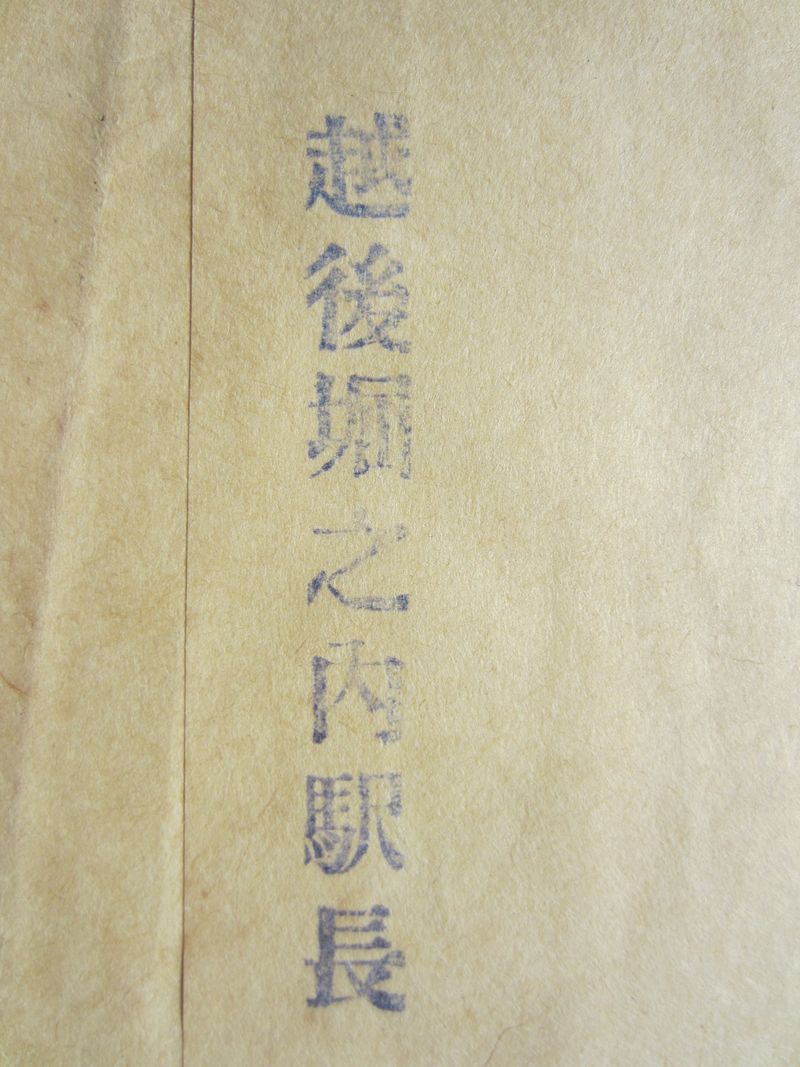 越後堀之内駅長